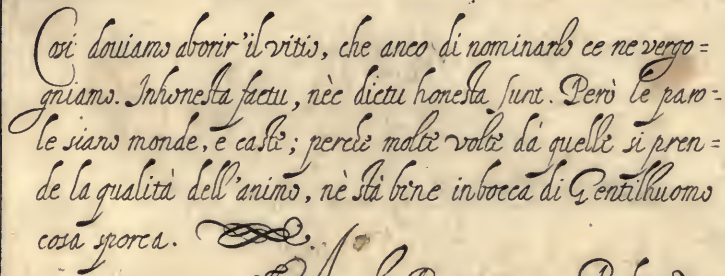 Cosi douiamo aborir' il vitio, che anco di nominarlo ce ne vergo=
gniamo. Inhonesta factu, nèc dictu honesta sunt. Però le paro=
le siano monde, e caste; perche molte volte dà quelle si pren=
de la qualità dell'animo, nè stà bene inbocca di Gentilhuomo
cosa sporca.